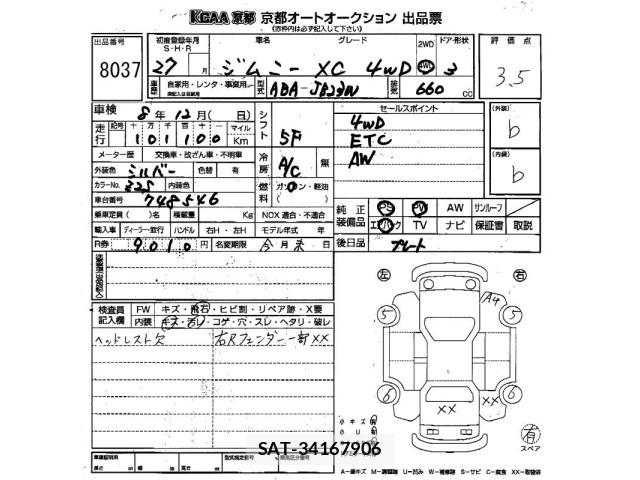 KCAA 京都 京都オートオークション 出品票
(赤枠内は必ず記入して下さい)
出品番号
8037
初度登録年月
S・H・R
27 月
車名 グレード
ジムニー XC 4WD
2WD 4WD
ドア・形状
3
評価点
3.5
車歴 自家用・レンタ・事業用
型式 ABA-JB23W
排気 660 cc
車検 8年12月(日)
走行 記号 十 万 千 百 十 一 マイル
101100 Km
シフト 5F
セールスポイント
4WD
ETC
AW
(外装) b
(内装) b
メーター歴 交換車・改ざん車・不明車
外装色 シルバー 色替 有
冷房 A/C 無
カラーNo. Z2S 内装色
燃料 ガソリン・軽油
( )
車台番号 748546
乗車定員( )名 積載量 Kg NOX 適合・不適合
輸入車 ディーラー・並行 ハンドル 右H・左H モデル年式 年
R券 9010円 名変期限 今月末日
純正装備品 PS PW AW サンルーフ
エアバック TV ナビ 保証書 取説
後日品 プレート
検査員記入欄 FW キズ・飛石・ヒビ割・リペア跡・X要
内装 キズ・汚レ・コゲ・穴・スレ・ヘタリ・破レ
ヘッドレスト欠 右Rフェンダー一部XX
左 右
A4
5 5
6 6
XX XX
小キズ 有
小U
有
スペア
車庫証明用
長さ cm 幅 cm 高さ cm 型式指定番号
SAT-34167906
A-線キズ U-凹み W-補修跡 S-サビ C-腐食 XX-取替済